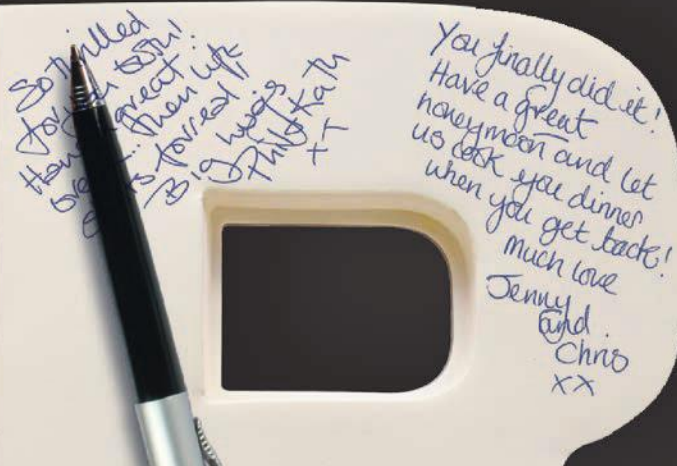 So thrilled
for you both!
Have a great
break... Then life
starts for real!
Big hugs
Phil & Kath
xx
You finally did it!
Have a great
honeymoon and let
us cook you dinner
when you get back!
Much love
Jenny
and
Chris
xx